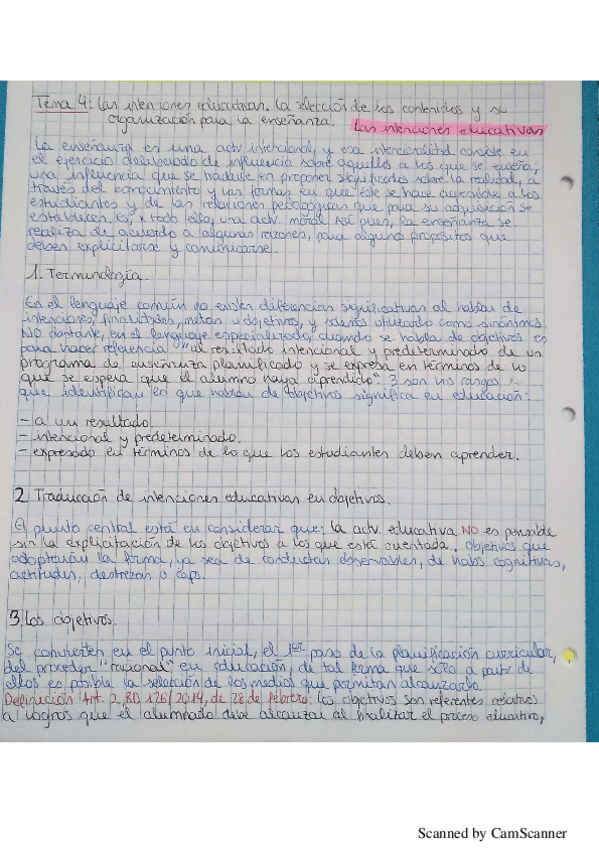 Tema 4: Las intenciones educativas. La selección de los contenidos y su
organización para la enseñanza. Las intenciones educativas
La enseñanza es una actv intencional, y esa intencionalidad consiste en
el ejercicio deliberado de influencia sobre aquellos a los que se enseña;
una influencia que se traduce en proponer significados sobre la realidad, a
través del conocimiento y las formas en que éste se hace accesible a los
estudiantes y de las relaciones pedagógicas que para su adquisición se
establecen. Es, x todo ello, una actv. moral. Así pues, la enseñanza se
realiza de acuerdo a algunas razones, para algunos propósitos que
deben explicitarse y comunicarse.
1. Terminología.
En el lenguaje común no existen diferencias significativas al hablar de
intenciones, finalidades, metas u objetivos, y podemos utilizarlo como sinónimos.
NO obstante, en el lenguaje especializado, cuando se habla de objetivos es
para hacer referencia "al resultado intencional y predeterminado de un
programa de enseñanza planificado y se expresa en términos de lo
que se espera que el alumno haya aprendido". 3 son los rasgos
que identifican lo que hablar de objetivos significa en educación:
- a un resultado.
- intencional y predeterminado.
- expresado en términos de lo que los estudiantes deben aprender.
2 Traducción de intenciones educativas en objetivos.
El punto central está en considerar que: la actv. educativa NO es pensable
sin la explicitación de los objetivos a los que está orientada. Objetivos que
adoptarán la forma, ya sea de conductas observables, de habs cognitivas,
actitudes, destrezas o caps.
3. Los objetivos.
Se convierten en el punto inicial, el 1er paso de la planificación curricular,
del proceder "racional" en educación, de tal forma que solo a partir de
ellos es posible la selección de los medios que permitan alcanzarlo.
Definición Art. 2, RD 126/2014, de 28 de febrero: los objetivos son referentes relativos
a logros que el alumnado debe alcanzar al finalizar el proceso educativo,
Scanned by CamScanner